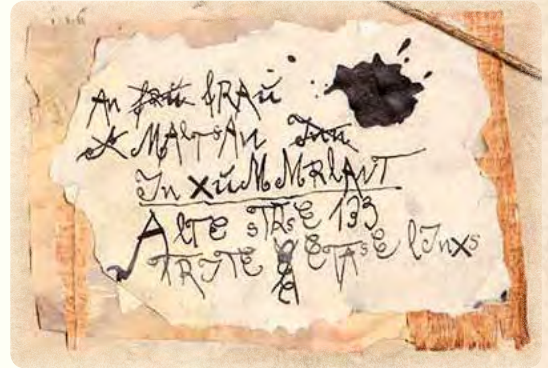 An fRAü
MAltsAN
In XüMMRLANT
ALTE STRSE 133
TRITE ETASE lInxs